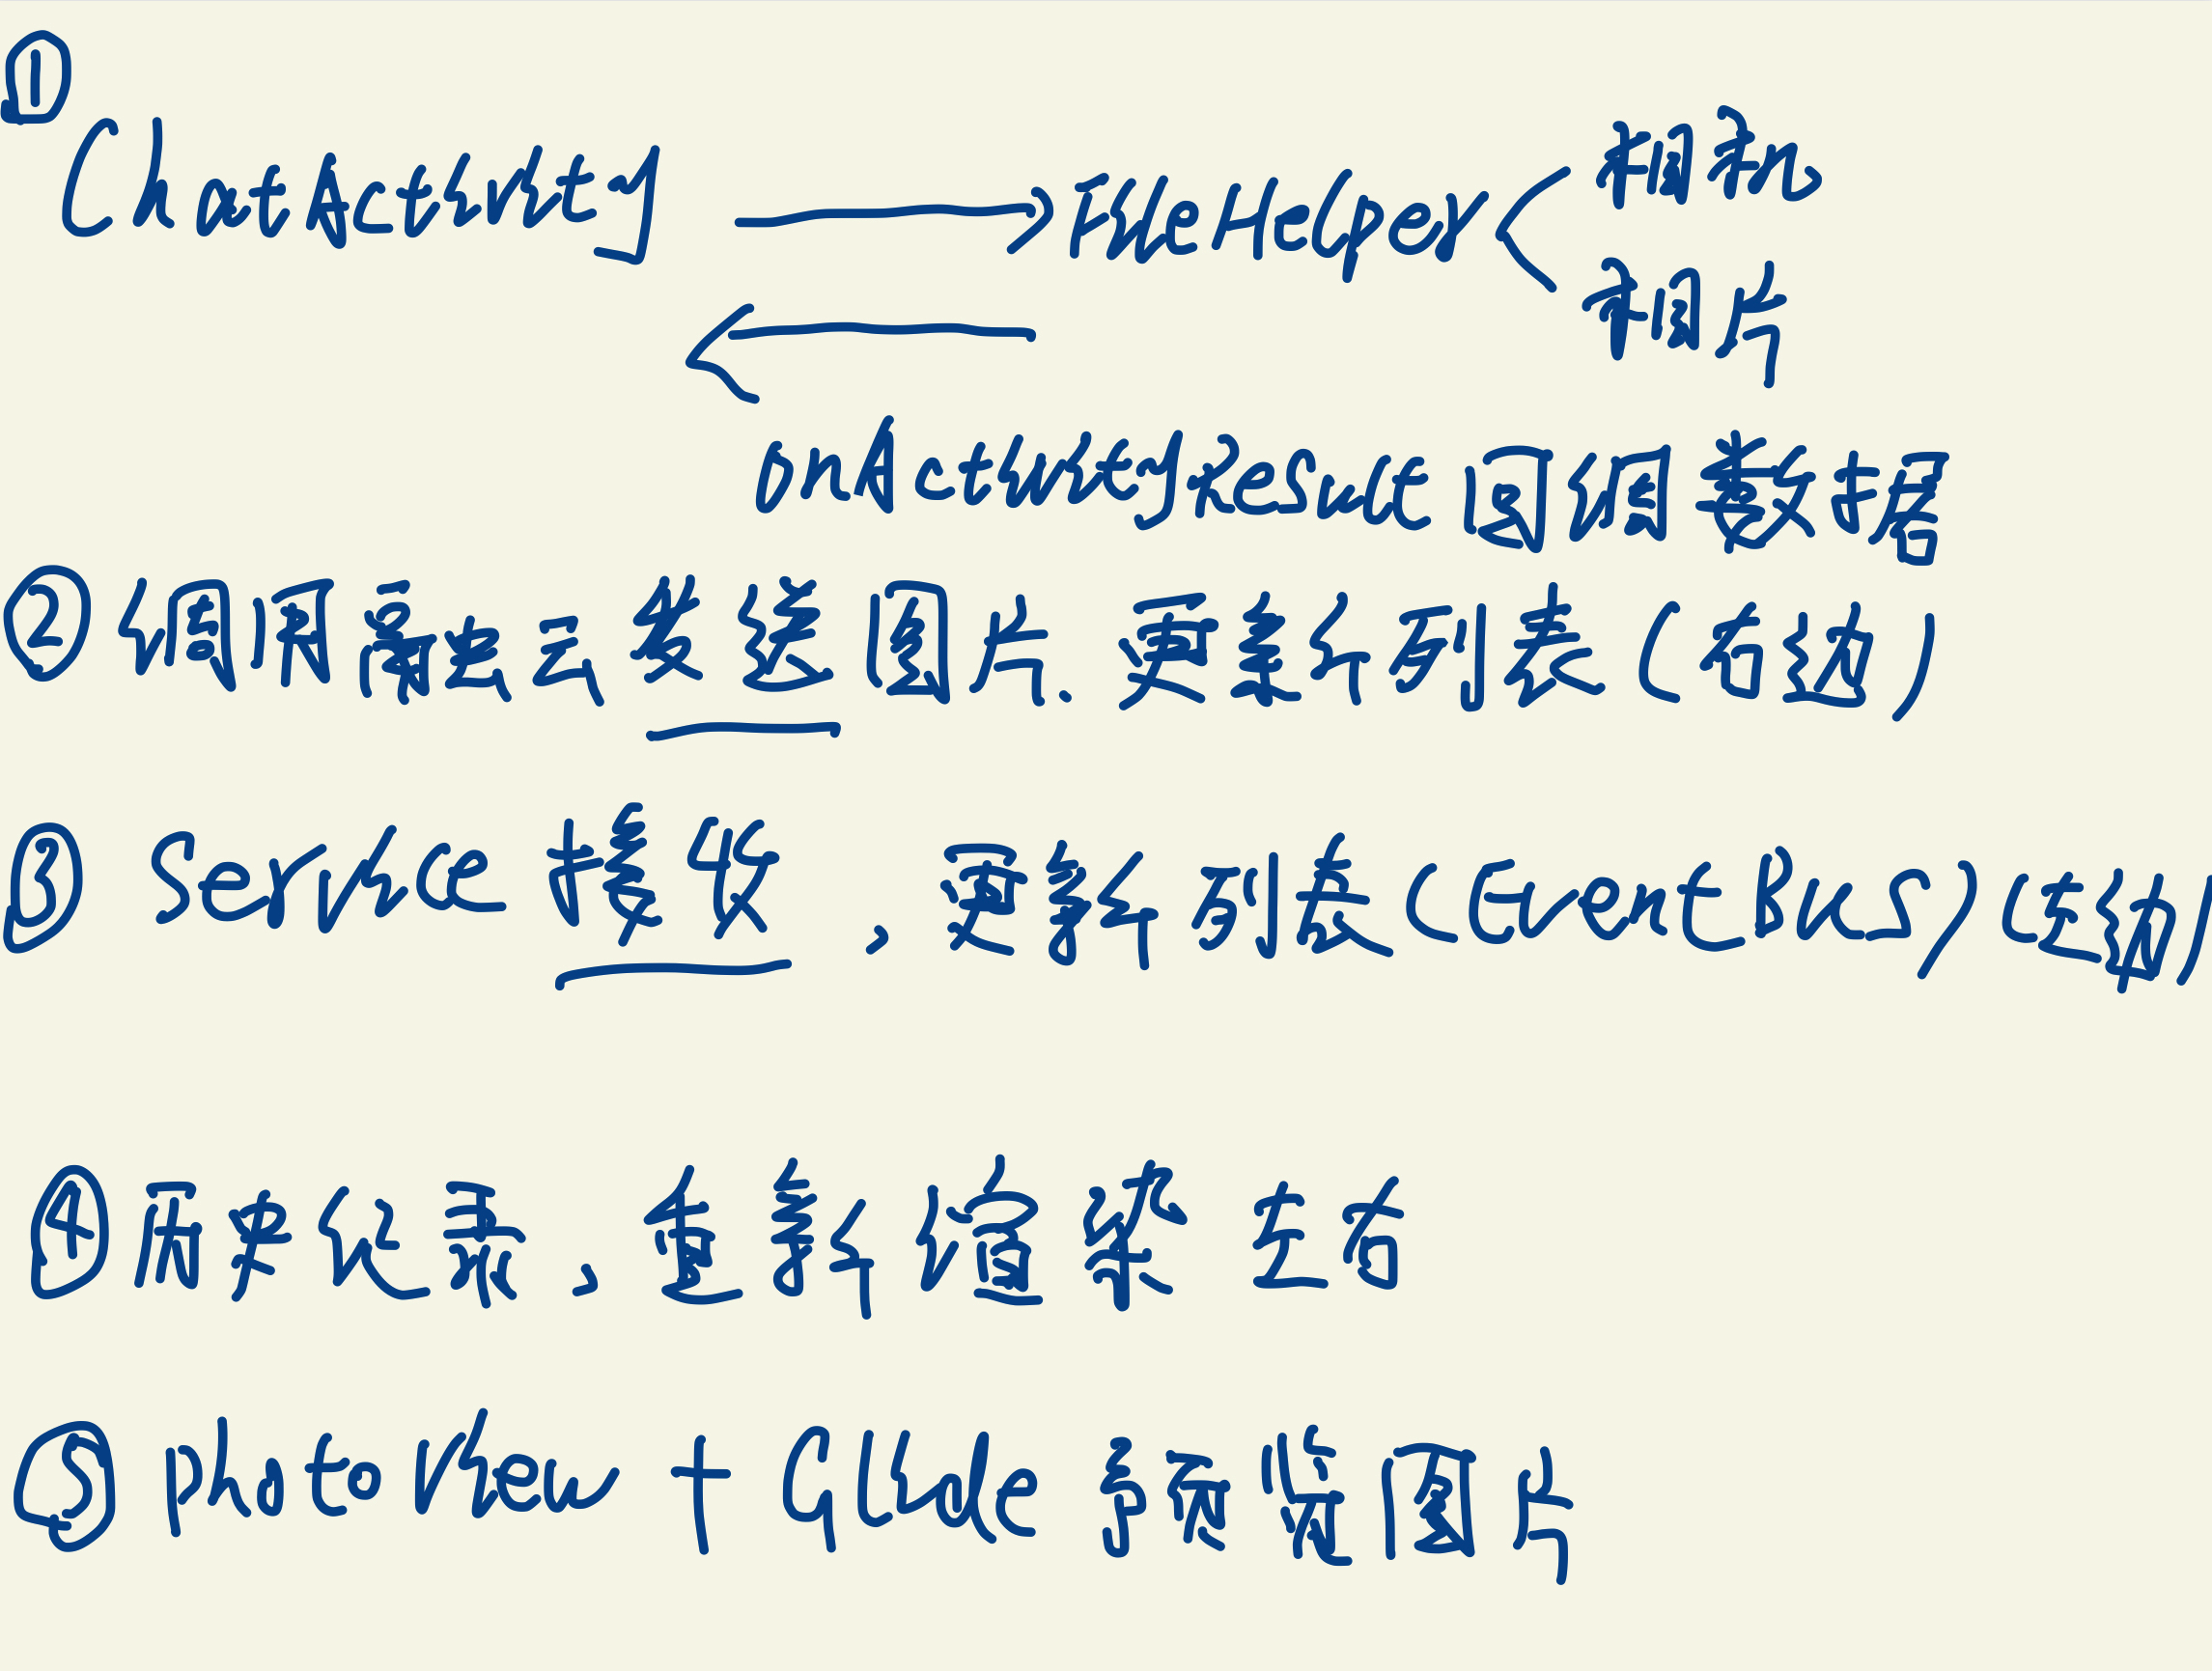 ①
ChatActivity → FileHelper < 相机
相片
←
onActivityResult 回调数据
② 调用融云发送图片. 更新列表(右边)
③ Service 接收 , 更新列表(EventBus)(左边)
④ 历史记录、重新渲染 左右
⑤ PhotoView + Glide 预览图片